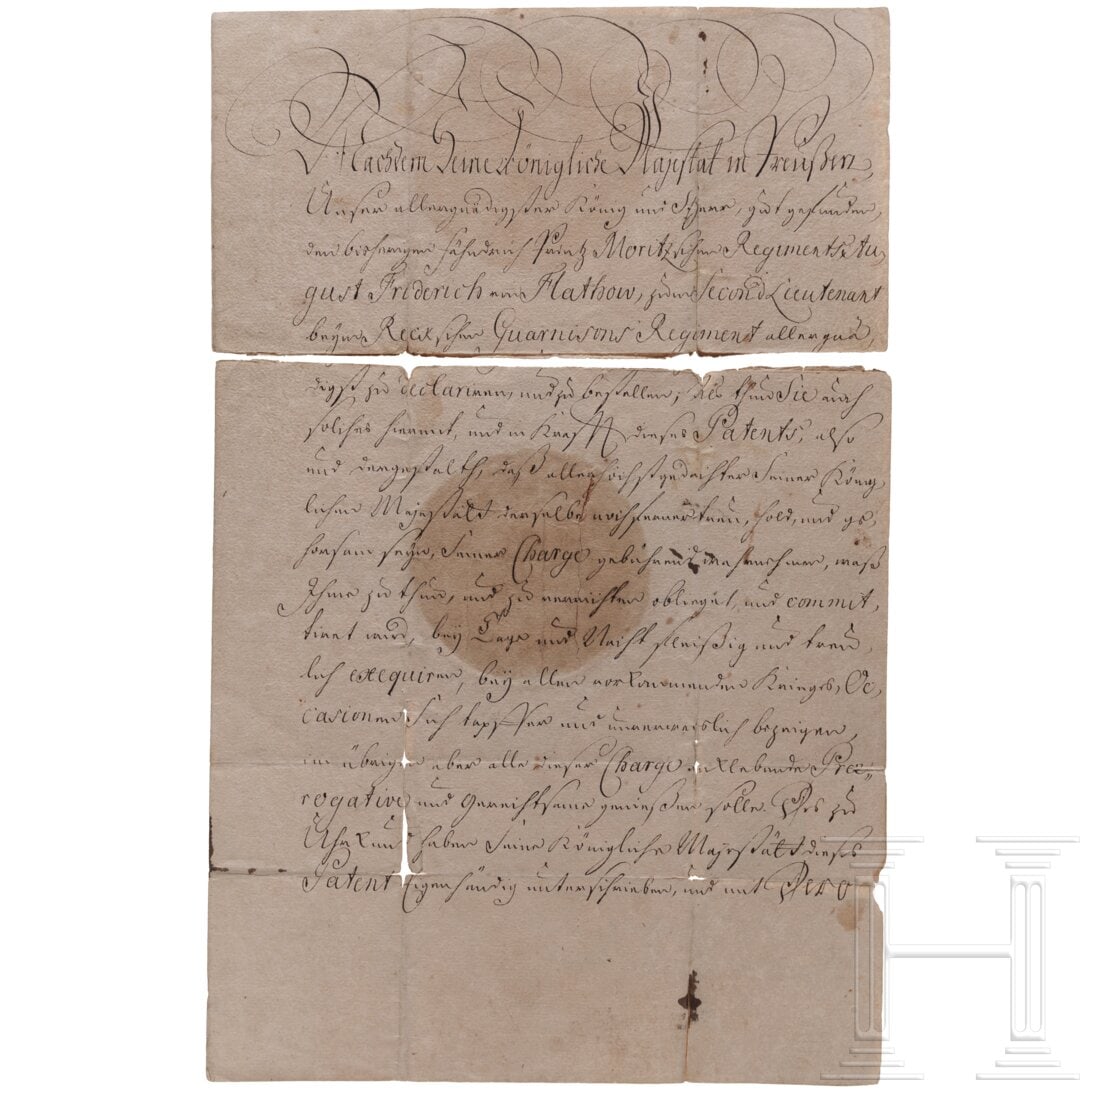 Nachdem Seine Königliche Majestät in Preußen,
Unser allergnädigster König und Herr, gut gefunden,
den bisherigen Fähndrich Printz Moritzschen Regiments, Au,
gust Friderich von Flathow, zum Second Lieutenant
beym Reckschen Guarnisons Regiment allergnä,
digst zu declariren, und zu bestellen; Als thun Sie auch
solches hiermit, und in Krafft dieses Patents, also
und dergestalth, daß allerhöchstgedachter Seiner König,
lichen Majestätt derselbe noch ferner treu, hold, und ge,
horsam seyn, Seiner Charge gebührend wahrnehmen, waß
Ihme zu thun, und zu verrichten oblieget, und commit,
tiret wird, bey Tage und Nacht fleißig und treu,
lich exequiren, bey allen vorkommenden Krieges, Oc,
casionen sich tapffer und unverweislich bezeigen,
im übrigen aber alle dieser Charge anklebende Præ=
rogative und Gerechtsame genießen solle. Deß zu
Uhrkund haben Seine Königliche Majestätt dieses
Patent Eigenhändig unterschrieben, und mit Dero
H